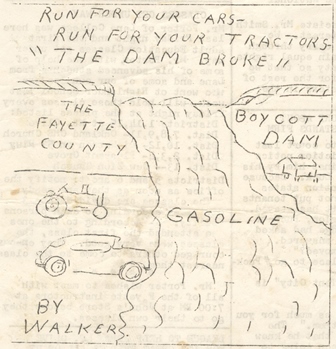 RUN FOR YOUR CARS-
RUN FOR YOUR TRACTORS-
"THE DAM BROKE"
THE
FAYETTE
COUNTY
BOYCOTT
DAM
GASOLINE
BY
WALKER